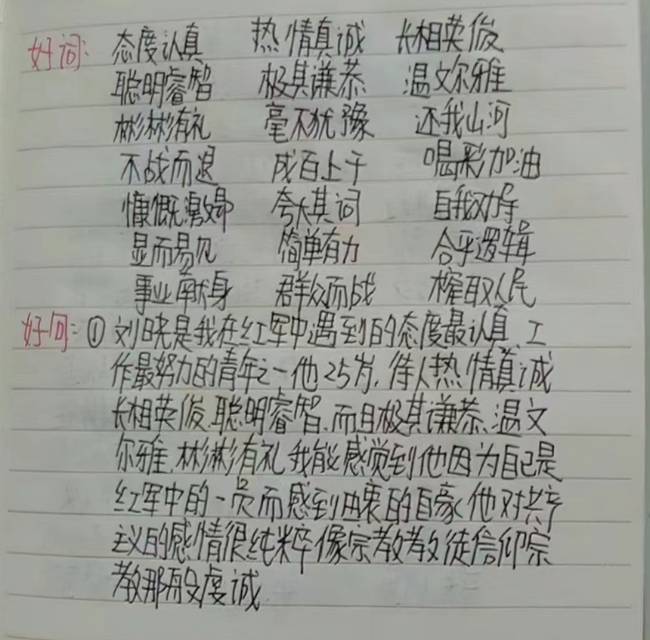 好词: 态度认真 热情真诚 长相英俊
聪明睿智 极其谦恭 温文尔雅
彬彬有礼 毫不犹豫 还我山河
不战而退 成百上千 喝彩加油
慷慨激昂 夸大其词 自我对手
显而易见 简单有力 合乎逻辑
事业献身 群众而战 榨取人民
好句: ① 刘晓是我在红军中遇到的态度最认真、工
作最努力的青年之一他25岁,待人热情真诚
长相英俊、聪明睿智、而且极其谦恭、温文
尔雅,彬彬有礼,我能感觉到他因为自己是
红军中的一员而感到由衷的自豪,他对共产
主义的感情很纯粹像宗教教徒信仰宗
教那般虔诚